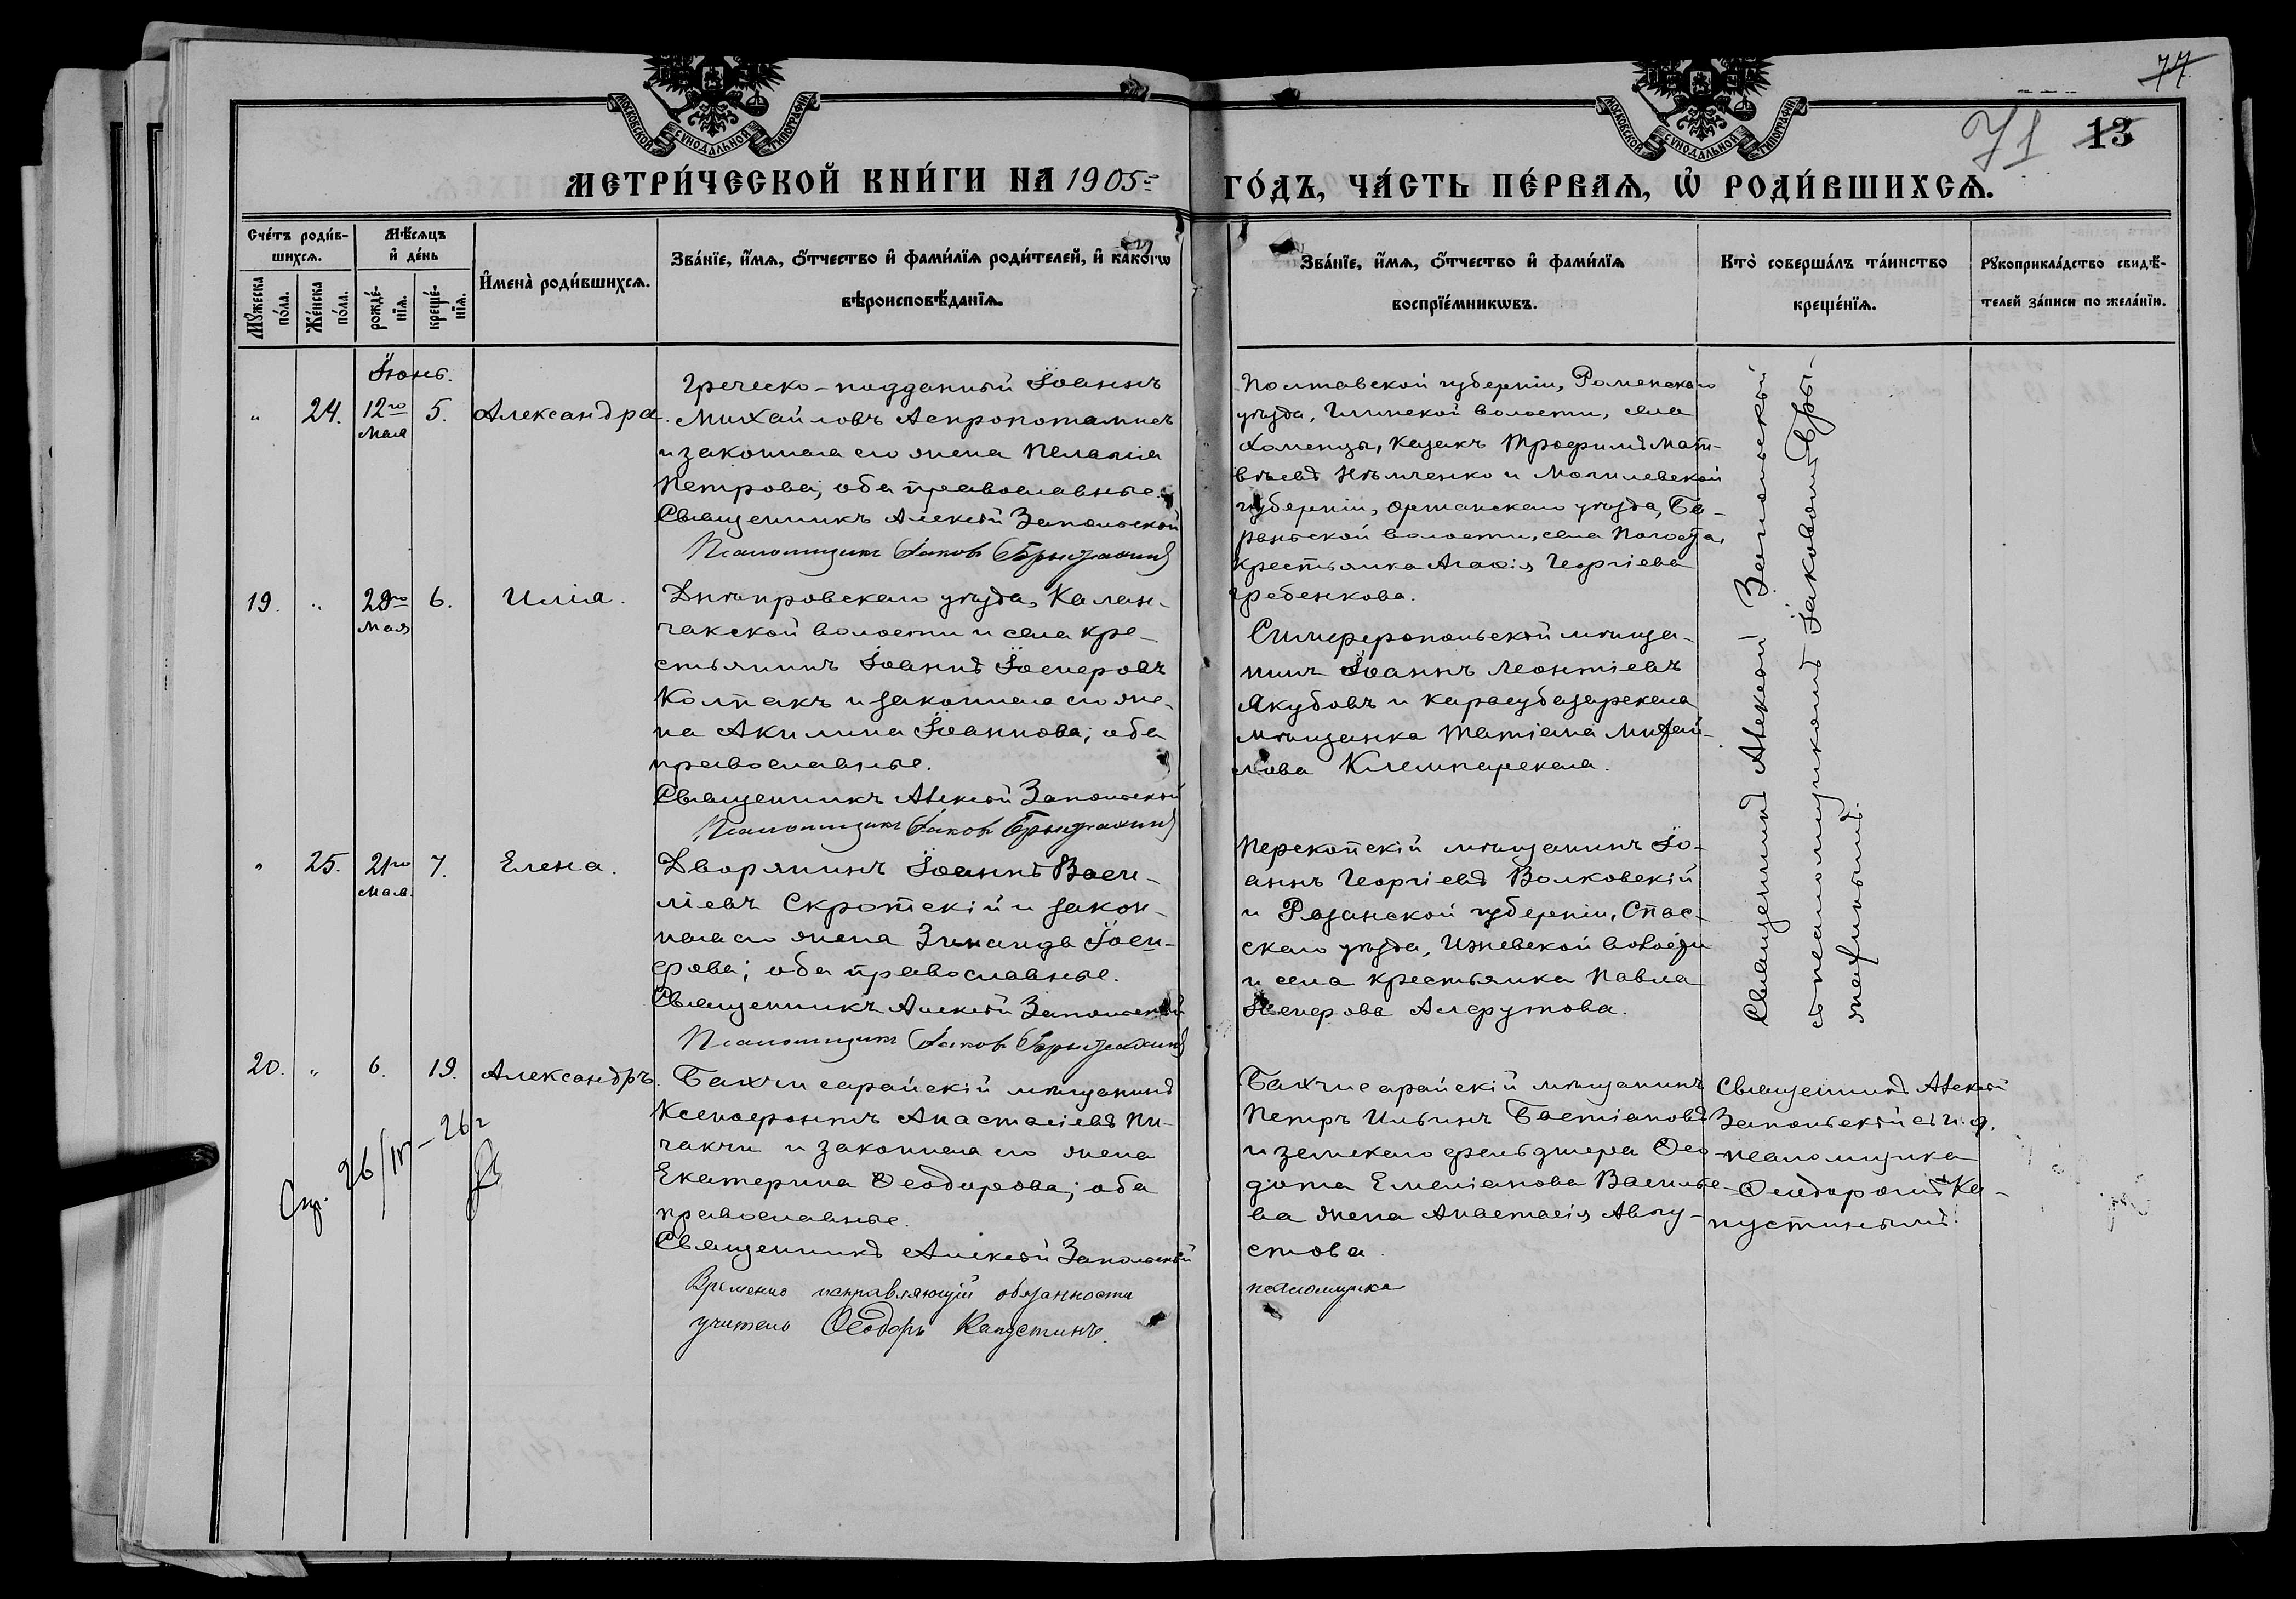 МОСКОВСКОЙ СѴНОДАЛЬНОЙ ТИПОГРАФІИ
МОСКОВСКОЙ СѴНОДАЛЬНОЙ ТИПОГРАФІИ
77
71 13
МЕТРИ́ЧЕСКОЙ КНИ́ГИ НА 1905 г.
ГО́ДЪ, ЧА́СТЬ ПЕ́РВАѦ, Ѽ РОДИ́ВШИХСѦ.
Сче́тъ роди́в-
шихсѧ.
Мѣ́сѧцъ
и҆ де́нь
Мꙋ́жеска по́ла.
Же́нска по́ла.
рожде́-
нїѧ.
креще́-
нїѧ.
И҆мена̀ роди́вшихсѧ.
Зва́нїе, и҆́мѧ, ѻ҆́тчество и҆ фами́лїѧ роди́телей, и҆ како́гѡ
вѣроисповѣ́данїѧ.
Зва́нїе, и҆́мѧ, ѻ҆́тчество и҆ фами́лїѧ
воспрїе́мникѡвъ.
Кто̀ соверша́лъ та́инство
креще́нїѧ.
Рꙋкоприкла́дство свидѣ́-
телей за́писи по жела́нїю.
Іюнь.
" 24. 12го мая 5. Александра.
Греческо-подданный Іоаннъ
Михайловъ Аспропотамитъ
и законная его жена Пелагія
Петрова; оба православные.
Священникъ Алексѣй Запольскій
Псаломщикъ Іаковъ Брызжахинъ
Полтавской губерніи, Роменскаго
уѣзда, Глинской волости, села
Хоменцы, казакъ Трофимъ Мат-
вѣевъ Нѣмченко и Могилевской
губерніи, Оршанскаго уѣзда, Ба-
раньской волости, села Погоста,
крестьянка Агаѳія Георгіева
Гребенкова.
19. " 29го мая 6. Илія.
Днѣпровскаго уѣзда, Калан-
чакской волости и села кре-
стьянинъ Іоаннъ Іосифовъ
Колпакъ и законная его же-
на Акилина Іоаннова; оба
православные.
Священникъ Алексѣй Запольскій
Псаломщикъ Іаковъ Брызжахинъ
Симферопольскій мѣща-
нинъ Іоаннъ Леонтіевъ
Якубовъ и карасубазарская
мѣщанка Татіана Михай-
лова
" 25. 21го мая 7. Елена.
Дворянинъ Іоаннъ Васи-
ліевъ Скротскій и закон-
ная его жена Зинаида Іоси-
фова; оба православные.
Священникъ Алексѣй Запольскій
Псаломщикъ Іаковъ Брызжахинъ
Перекопскій мѣщанинъ Іо-
аннъ Георгіевъ Волковскій
и Рязанской губерніи, Спас-
скаго уѣзда, Ижевской волости
и села крестьянка Павла
Іосифова
Священникъ Алексѣй Запольскій
съ псаломщикомъ Іаковомъ Бры-
жахинымъ.
20. " 6. 19. Александръ.
Бахчисарайскій мѣщанинъ
Ксенофонтъ Анастасіевъ Пи-
чакчи и законная его жена
Екатерина Ѳеодорова; оба
православные.
Священникъ Алексѣй Запольскій
Временно исправляющій обязанности
учитель Ѳеодоръ Капустинъ.
Бахчисарайскій мѣщанинъ
Петръ Ильинъ Бостіановъ
и земскаго фельдшера Ѳео-
дота Емеліанова Василье-
ва жена Анастасія Авгу-
стова.
псаломщика
Священникъ Алексѣй
Запольскій съ и. д.
псаломщика
Ѳеодоромъ Ка-
пустинымъ.
26/IV-26 г